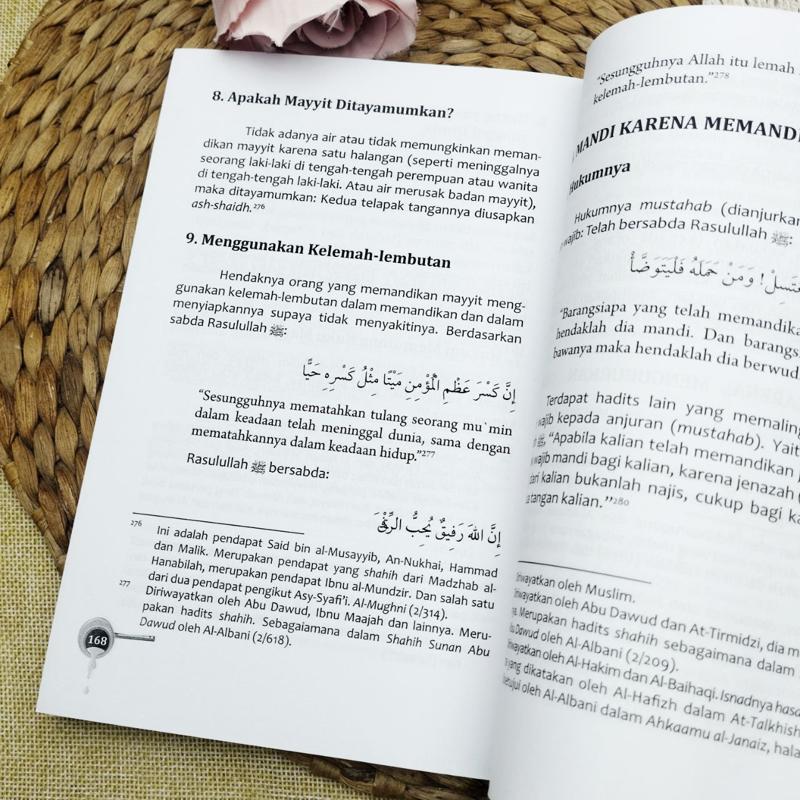 8. Apakah Mayyit Ditayamumkan?
Tidak adanya air atau tidak memungkinkan meman-
dikan mayyit karena satu halangan (seperti meninggalnya
seorang laki-laki di tengah-tengah perempuan atau wanita
di tengah-tengah laki-laki. Atau air merusak badan mayyit),
maka ditayamumkan: Kedua telapak tangannya diusapkan
ash-shaidh.²⁷⁶
9. Menggunakan Kelemah-lembutan
Hendaknya orang yang memandikan mayyit meng-
gunakan kelemah-lembutan dalam memandikan dan dalam
menyiapkannya supaya tidak menyakitinya. Berdasarkan
sabda Rasulullah ﷺ:
إِنَّ كَسْرَ عَظْمِ الْمُؤْمِنِ مَيْتًا مِثْلُ كَسْرِهِ حَيًّا
“Sesungguhnya mematahkan tulang seorang mu`min
dalam keadaan telah meninggal dunia, sama dengan
mematahkannya dalam keadaan hidup.”²⁷⁷
Rasulullah ﷺ bersabda:
إِنَّ اللهَ رَفِيقٌ يُحِبُّ الرِّفْقَ
²⁷⁶ Ini adalah pendapat Said bin al-Musayyib, An-Nukhai, Hammad
dan Malik. Merupakan pendapat yang shahih dari Madzhab al-
Hanabilah, merupakan pendapat Ibnu al-Mundzir. Dan salah satu
dari dua pendapat pengikut Asy-Syafi'i. Al-Mughni (2/314).
²⁷⁷ Diriwayatkan oleh Abu Dawud, Ibnu Maajah dan lainnya. Meru-
pakan hadits shahih. Sebagaimana dalam Shahih Sunan Abu
Dawud oleh Al-Albani (2/618).
168
“Sesungguhnya Allah itu lemah
kelemah-lembutan.”²⁷⁸
MANDI KARENA MEMANDI
Hukumnya
Hukumnya mustahab (dianjurkan
wajib: Telah bersabda Rasulullah ﷺ:
وَمَنْ حَمَلَهُ فَلْيَتَوَضَّأْ
“Barangsiapa yang telah memandika
hendaklah dia mandi. Dan barangs
bawanya maka hendaklah dia berwud
Terdapat hadits lain yang memaling
wajib kepada anjuran (mustahab). Yait
ﷺ, “Apabila kalian telah memandikan
wajib mandi bagi kalian, karena jenazah
dari kalian bukanlah najis, cukup bagi ka
tangan kalian.”²⁸⁰
riwayatkan oleh Muslim.
riwayatkan oleh Abu Dawud dan At-Tirmidzi, dia m
Merupakan hadits shahih sebagaimana dalam
Dawud oleh Al-Albani (2/209).
riwayatkan oleh Al-Hakim dan Al-Baihaqi. Isnadnya hasa
yang dikatakan oleh Al-Hafizh dalam At-Talkhish
setujui oleh Al-Albani dalam Ahkaamu al-Janaiz, hala